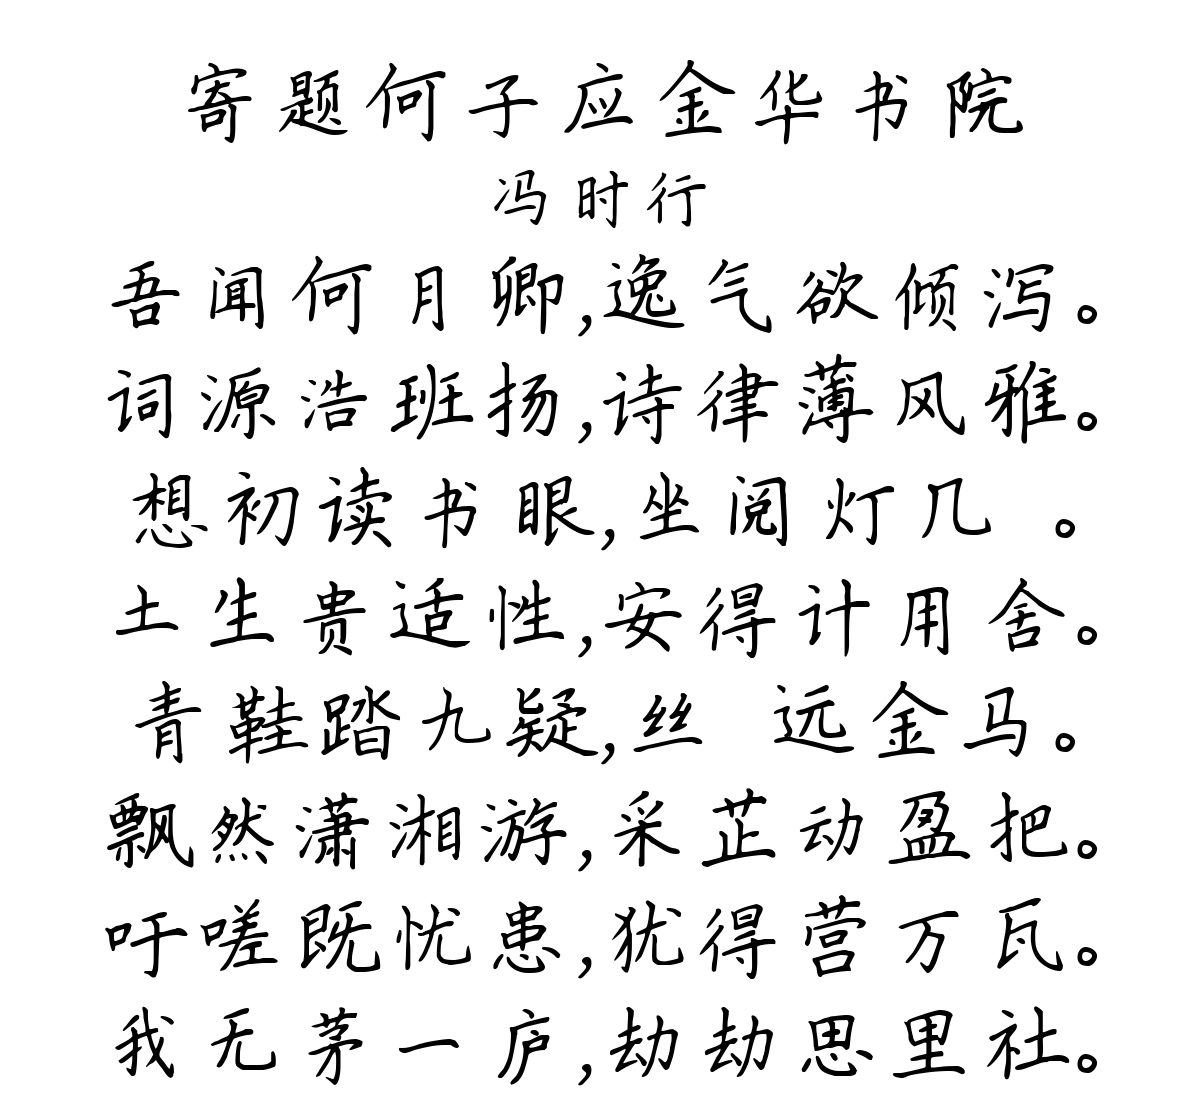 寄题何子应金华书院
冯时行
吾闻何月卿,逸气欲倾泻。
词源浩班扬,诗律薄风雅。
想初读书眼,坐阅灯几 。
土生贵适性,安得计用舍。
青鞋踏九疑,丝 远金马。
飘然潇湘游,采芷动盈把。
吁嗟既忧患,犹得营万瓦。
我无茅一庐,劫劫思里社。